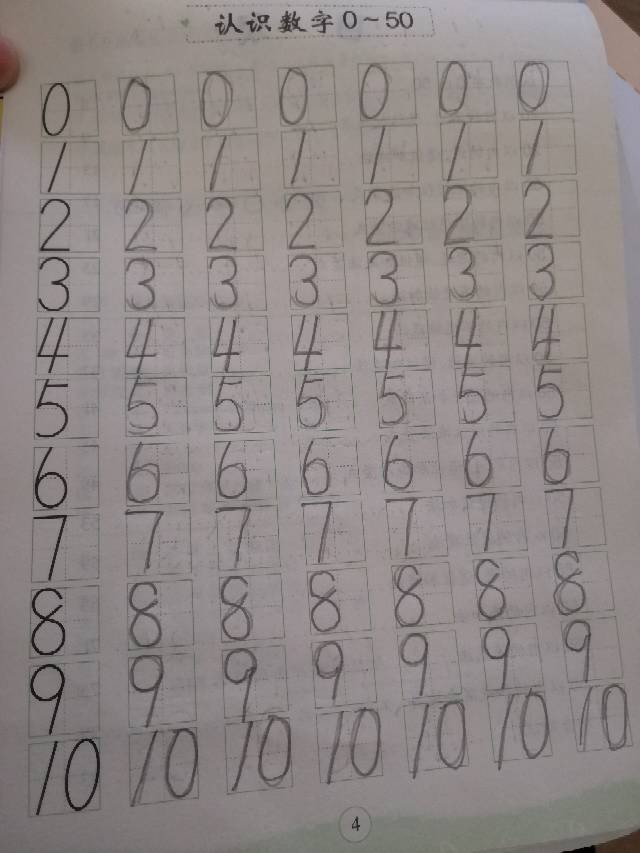 认识数字0~50
0 0 0 0 0 0 0
1 1 1 1 1 1 1
2 2 2 2 2 2 2
3 3 3 3 3 3 3
4 4 4 4 4 4 4
5 5 5 5 5 5 5
6 6 6 6 6 6 6
7 7 7 7 7 7 7
8 8 8 8 8 8 8
9 9 9 9 9 9 9
10 10 10 10 10 10 10
4